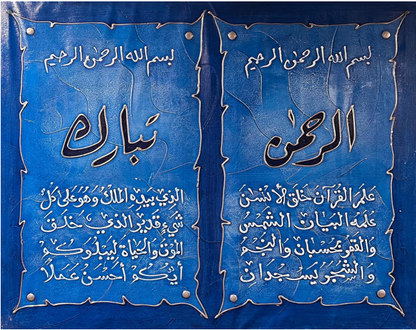 بسم الله الرحمن الرحيم
الرحمن
علم القرآن خلق الإنسان
علمه البيان الشمس
والقمر بحسبان والنجم
والشجر يسجدان
بسم الله الرحمن الرحيم
تبارك
الذي بيده الملك وهو على كل
شيء قدير الذي خلق
الموت والحياة ليبلوكم
أيكم أحسن عملا